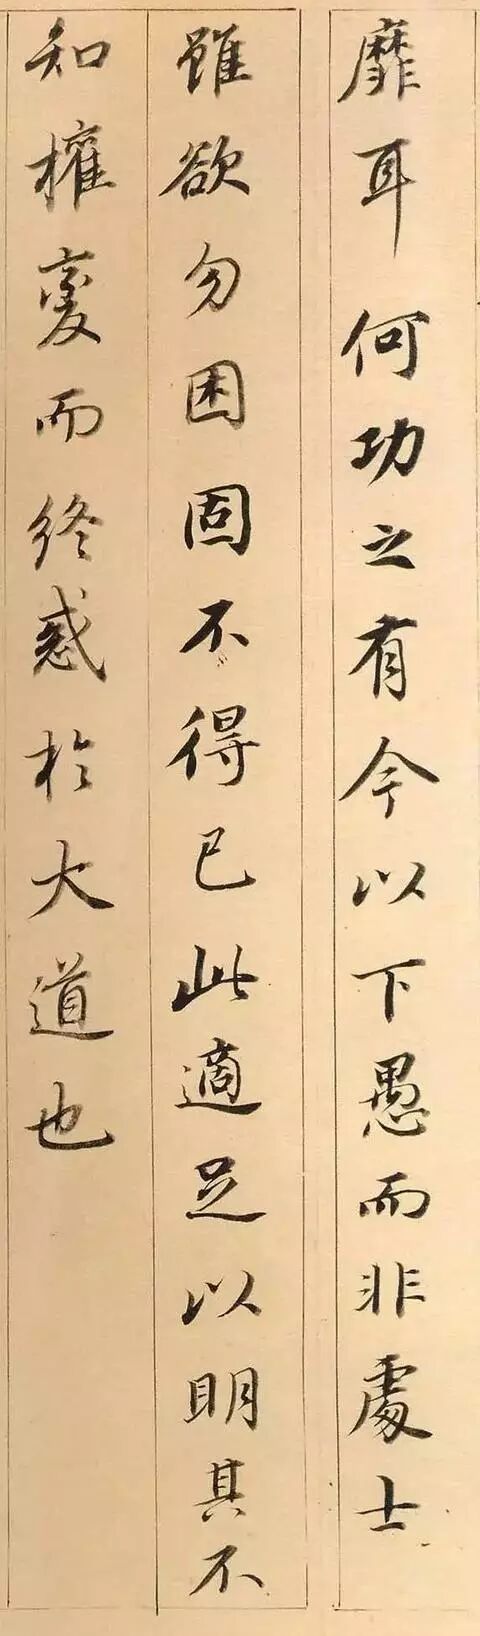 靡耳何功之有今以下愚而非處士
雖欲勿困固不得已此適足以明其不
知權變而終惑於大道也